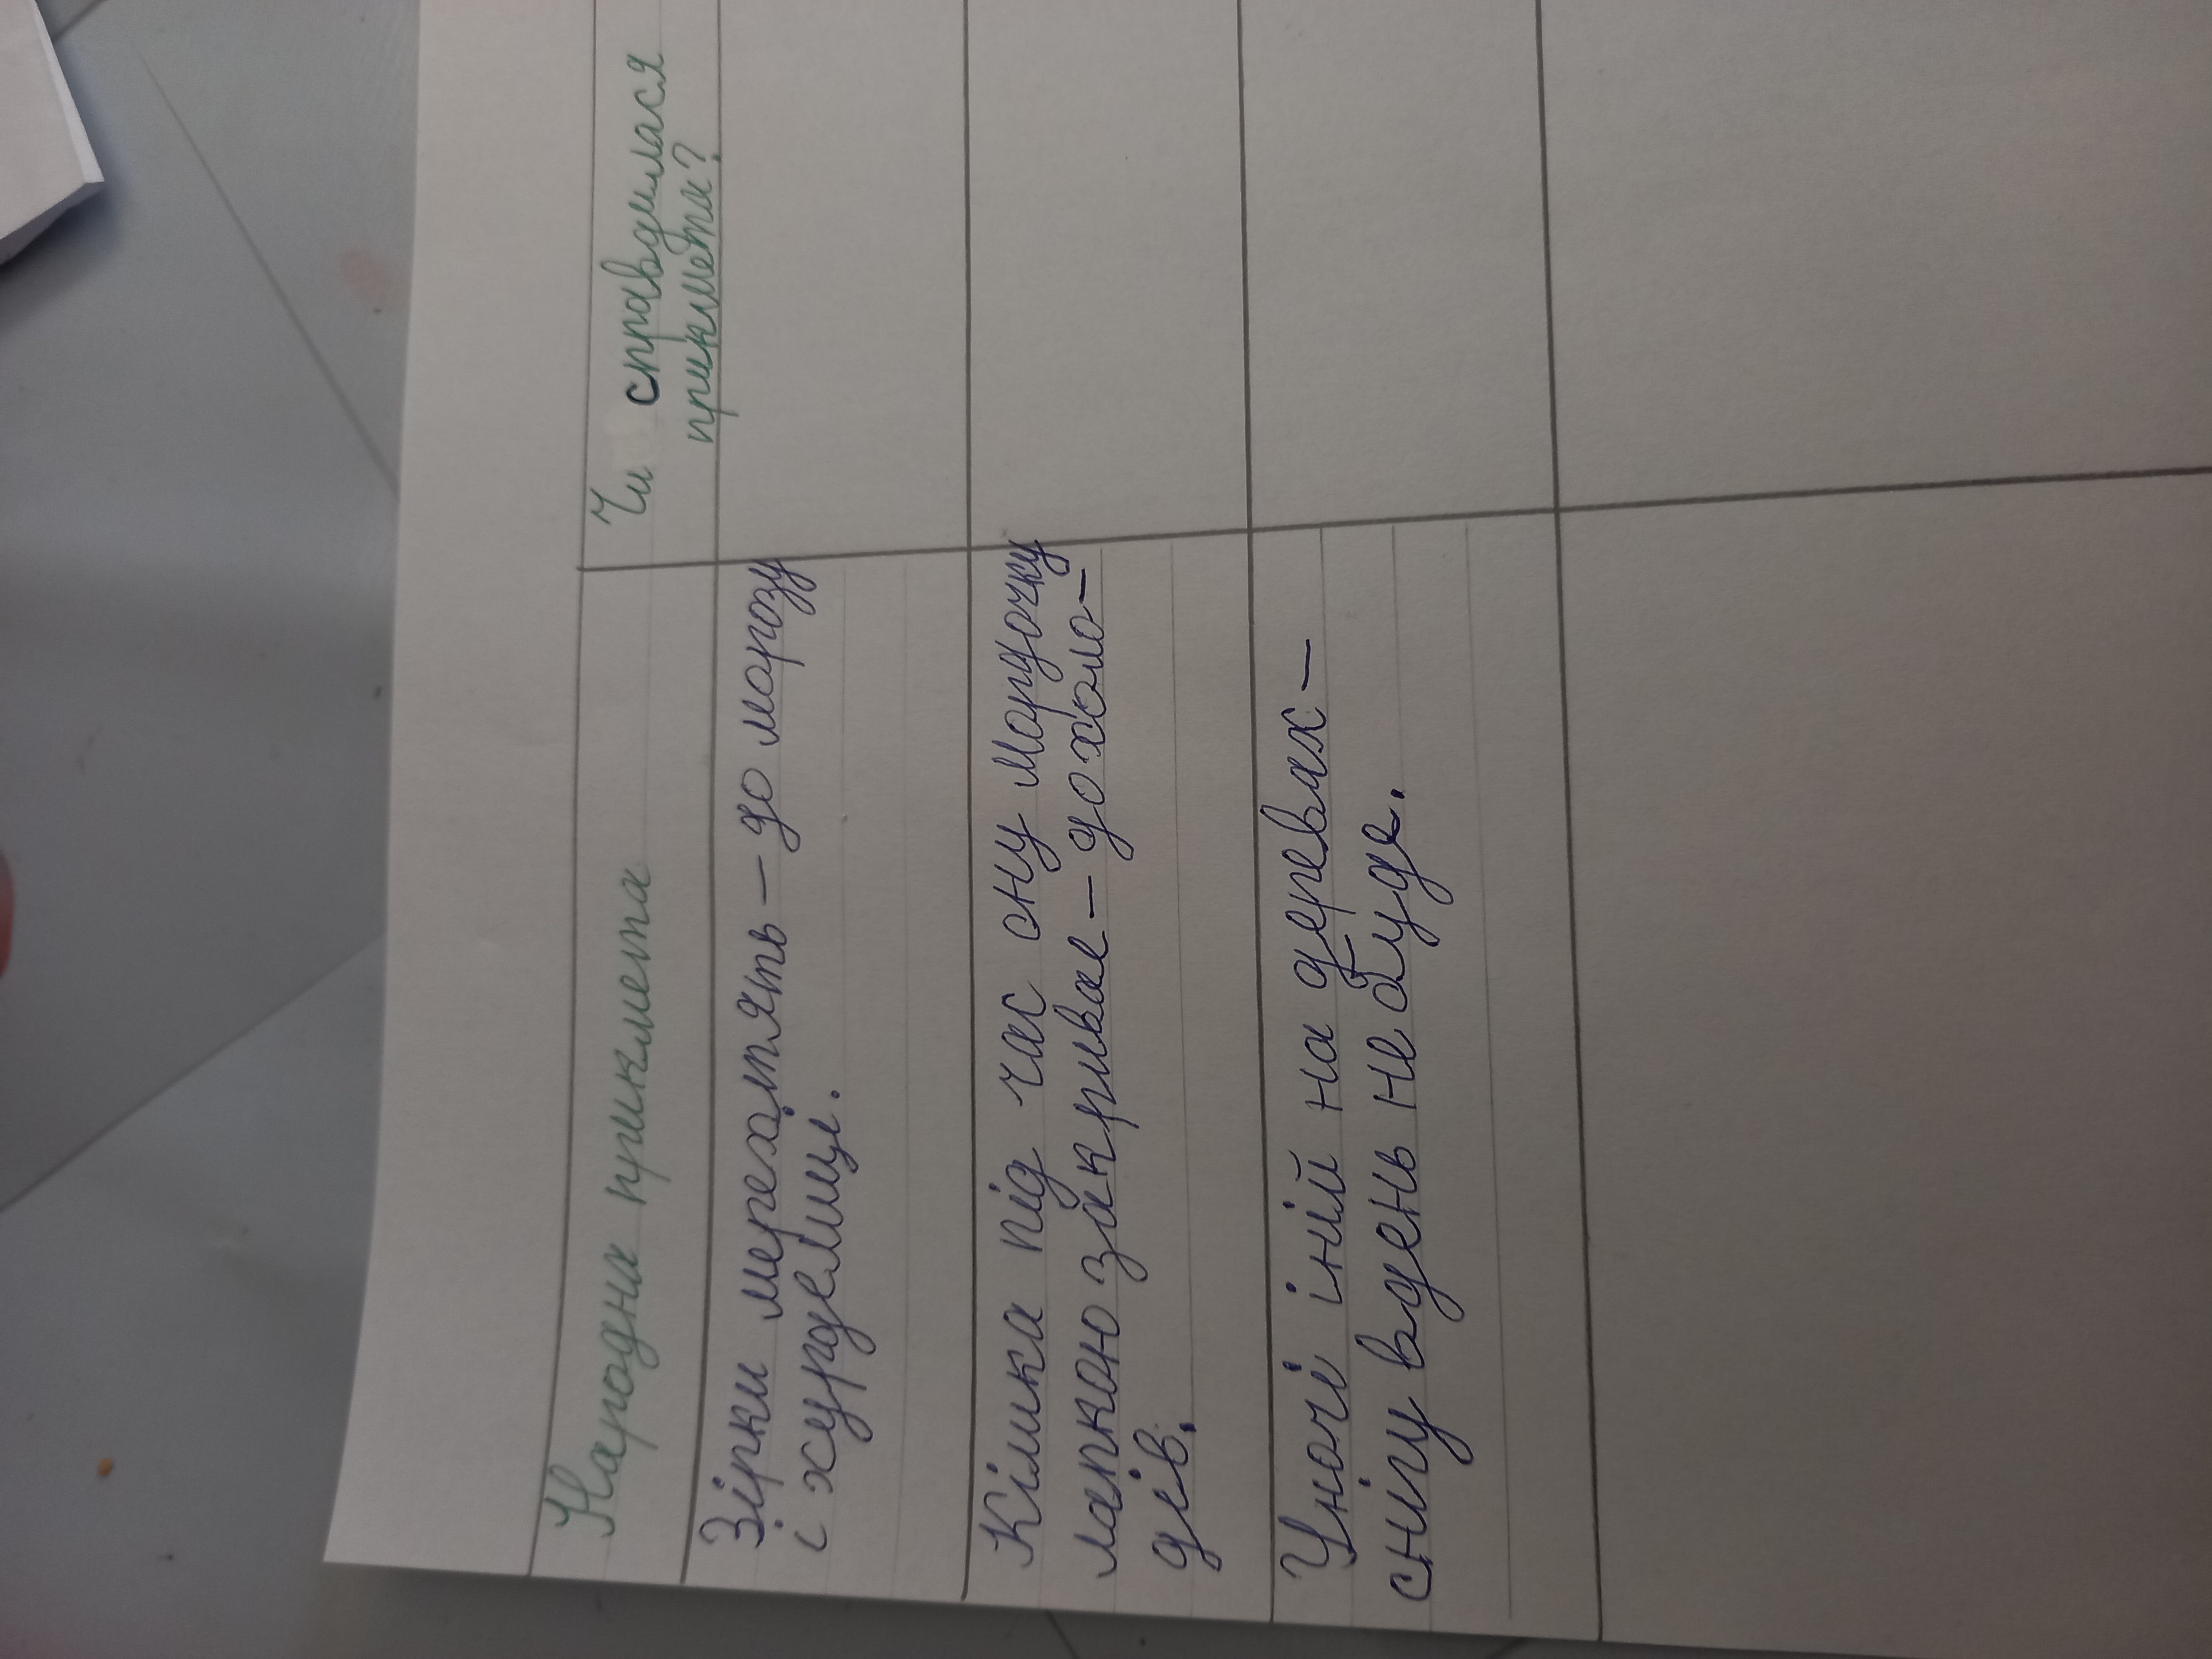 Народна прикмета
Чи справдилася
прикмета?
Зірки мерехтять – до морозу
і хурделиці.
Кішка під час сну мордочку
лапкою закриває – до холо-
дів.
Уночі іній на деревах –
снігу вдень не буде.